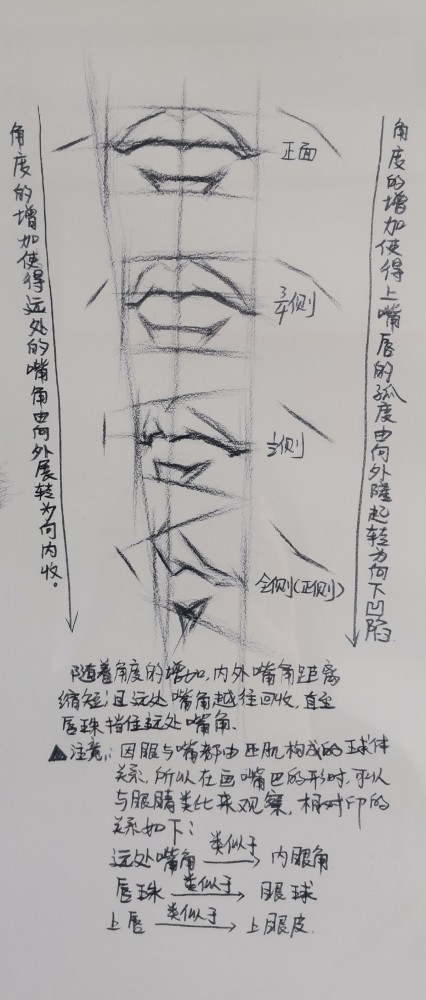 角度的增加使得远处的嘴角由向外展转为向内收。
正面
3/4侧
角度的增加使得上嘴唇的弧度由向外隆起转为向下凹陷
1/2侧
全侧(正侧)
随着角度的增加,内外嘴角距离
缩短;且远处嘴角越往回收,直至
唇珠挡住远处嘴角.
▲注意:因眼与嘴都由匝肌构成的球体
关系,所以在画嘴巴的形时,可以
与眼睛类比来观察,相对应的
关系如下:
远处嘴角 类似于→ 内眼角
唇珠 类似于→ 眼球
上唇 类似于→ 上眼皮.